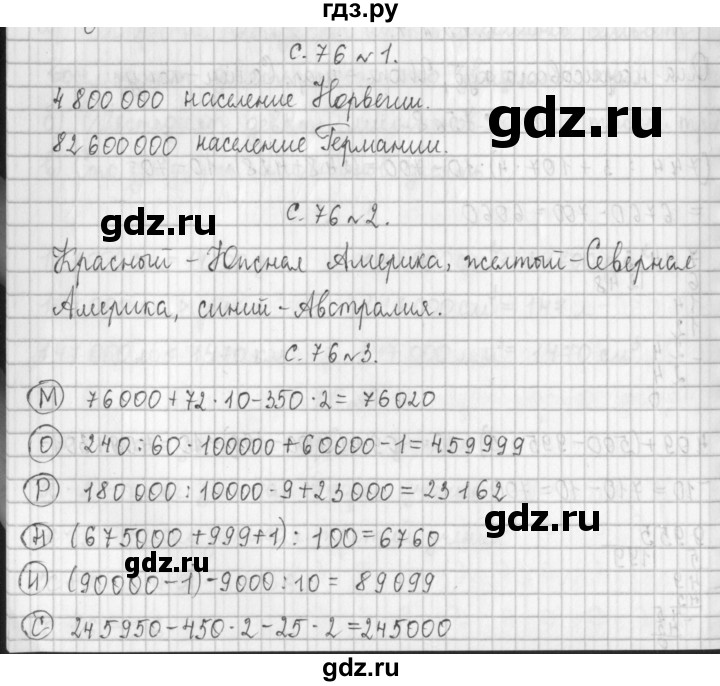 гдз.ру
с. 76 №1.
4 800 000 население Норвегии.
82 600 000 население Германии.
gdz.ru
с. 76 №2.
gdz.ru
Красный - Южная Америка, желтый - Северная
Америка, синий - Австралия.
с. 76 №3.
gdz.ru
М 76000+72·10-350·2= 76020
О 240:60·100000+60000-1=459999
Р 180000:10000·9+23000=23162
gdz.ru
Н (675000+999+1):100=6760
gdz.ru
И (90000-1)-9000:10= 89099
С 245950-450·2-25·2=245000
gdz.ru
gdz.ru